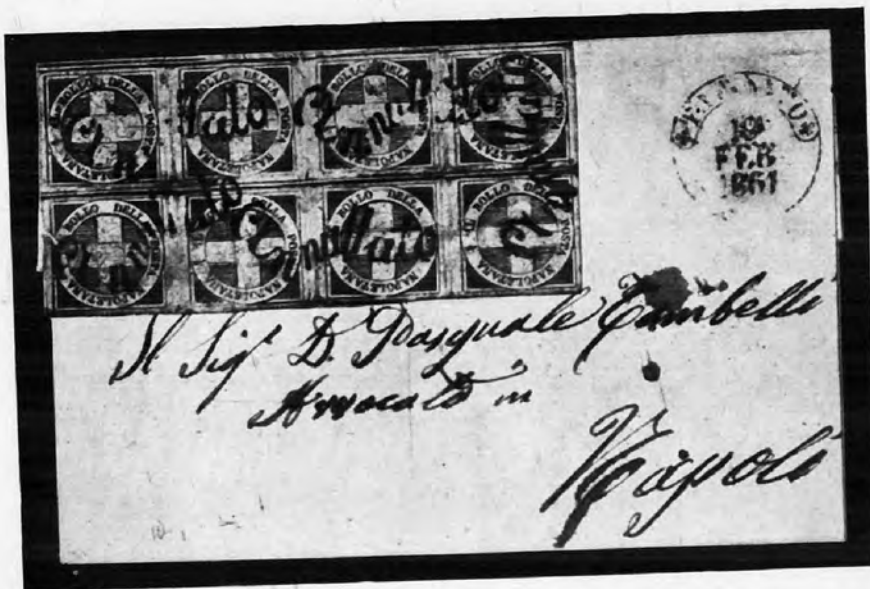 BOLLO DELLA POSTA NAPOLETANA
BOLLO DELLA POSTA NAPOLETANA
BOLLO DELLA POSTA NAPOLETANA
BOLLO DELLA POSTA NAPOLETANA
Annullato Annullato Annullato
BOLLO DELLA POSTA NAPOLETANA
BOLLO DELLA POSTA NAPOLETANA
BOLLO DELLA POSTA NAPOLETANA
BOLLO DELLA POSTA NAPOLETANA
Annullato Annullato
19
FEB
1861
Il Sigr D. Pasquale Cambelli
Avvocato in
Napoli